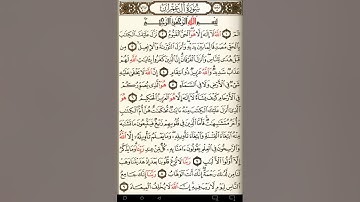 سُورَةُ آلِ عِمْرَانَ
بِسْمِ ٱللَّهِ ٱلرَّحْمَٰنِ ٱلرَّحِيمِ
الٓمٓ ۝ ٱللَّهُ لَآ إِلَٰهَ إِلَّا هُوَ ٱلْحَىُّ ٱلْقَيُّومُ ۝ نَزَّلَ عَلَيْكَ ٱلْكِتَٰبَ
بِٱلْحَقِّ مُصَدِّقًا لِّمَا بَيْنَ يَدَيْهِ وَأَنزَلَ ٱلتَّوْرَىٰةَ وَٱلْإِنجِيلَ ۝ مِن
قَبْلُ هُدًى لِّلنَّاسِ وَأَنزَلَ ٱلْفُرْقَانَ إِنَّ ٱلَّذِينَ كَفَرُوا۟ بِـَٔايَٰتِ ٱللَّهِ لَهُمْ
عَذَابٌ شَدِيدٌ وَٱللَّهُ عَزِيزٌ ذُو ٱنتِقَامٍ ۝ إِنَّ ٱللَّهَ لَا يَخْفَىٰ عَلَيْهِ شَىْءٌ
فِى ٱلْأَرْضِ وَلَا فِى ٱلسَّمَآءِ ۝ هُوَ ٱلَّذِى يُصَوِّرُكُمْ
فِى ٱلْأَرْحَامِ كَيْفَ يَشَآءُ لَآ إِلَٰهَ إِلَّا هُوَ ٱلْعَزِيزُ ٱلْحَكِيمُ ۝ هُوَ
ٱلَّذِىٓ أَنزَلَ عَلَيْكَ ٱلْكِتَٰبَ مِنْهُ ءَايَٰتٌ مُّحْكَمَٰتٌ هُنَّ أُمُّ ٱلْكِتَٰبِ
وَأُخَرُ مُتَشَٰبِهَٰتٌ فَأَمَّا ٱلَّذِينَ فِى قُلُوبِهِمْ زَيْغٌ فَيَتَّبِعُونَ مَا تَشَٰبَهَ
مِنْهُ ٱبْتِغَآءَ ٱلْفِتْنَةِ وَٱبْتِغَآءَ تَأْوِيلِهِۦ وَمَا يَعْلَمُ تَأْوِيلَهُۥٓ إِلَّا ٱللَّهُ
وَٱلرَّٰسِخُونَ فِى ٱلْعِلْمِ يَقُولُونَ ءَامَنَّا بِهِۦ كُلٌّ مِّنْ عِندِ رَبِّنَا وَمَا يَذَّكَّرُ
إِلَّآ أُو۟لُوا۟ ٱلْأَلْبَٰبِ ۝ رَبَّنَا لَا تُزِغْ قُلُوبَنَا بَعْدَ إِذْ هَدَيْتَنَا وَهَبْ
لَنَا مِن لَّدُنكَ رَحْمَةً إِنَّكَ أَنتَ ٱلْوَهَّابُ ۝ رَبَّنَآ إِنَّكَ جَامِعُ
ٱلنَّاسِ لِيَوْمٍ لَّا رَيْبَ فِيهِ إِنَّ ٱللَّهَ لَا يُخْلِفُ ٱلْمِيعَادَ ۝